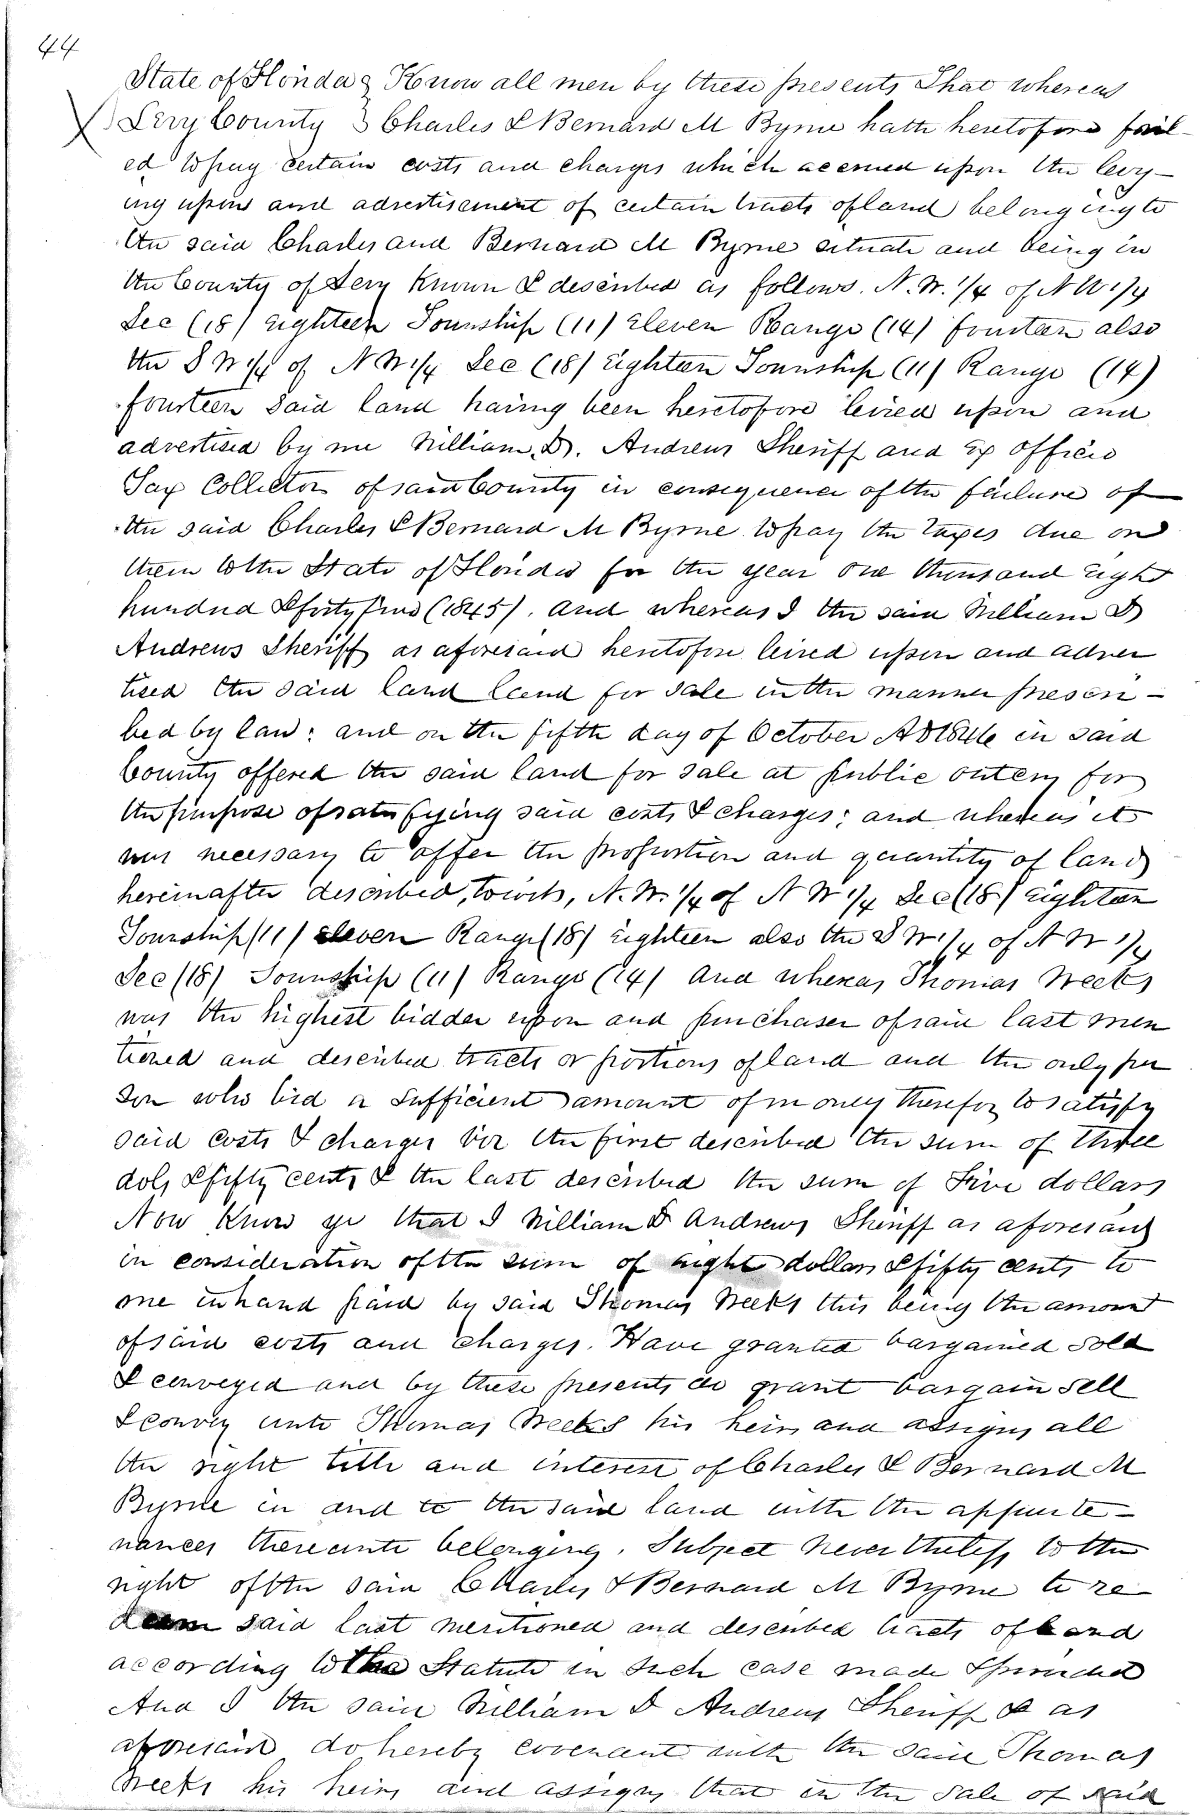 44
State of Florida } Know all men by these presents That whereas
Levy County } Charles & Bernard M Byrne hath heretofore fail-
ed to pay certain costs and charges which accrued upon the levy-
ing upon and advertisement of certain tracts of land belonging to
the said Charles and Bernard M Byrne situate and being in
the County of Levy Known & described as follows. N.W. 1/4 of N W 1/4
Sec (18) Eighteen Township (11) Eleven Range (14) fourteen also
the S W 1/4 of N W 1/4 Sec (18) Eighteen Township (11) Range (14)
fourteen said land having been heretofore levied upon and
advertised by me William, D. Andrews Sheriff and Ex officio
Tax Collector of said County in consequence of the failure of
the said Charles & Bernard M Byrne to pay the taxes due on
them to the State of Florida for the year one thousand Eight
hundred & forty five (1845). and whereas I the said William D
Andrews Sheriff as aforesaid heretofore levied upon and adver
tised the said land land for sale in the manner prescri-
bed by law: and on the fifth day of October AD 1846 in said
County offered the said land for sale at public outcry for
the purpose of satisfying said costs & charges; and whereas it
was necessary to offer the proportion and quantity of land
hereinafter described, towit, N.W. 1/4 of N W 1/4 Sec (18) Eighteen
Township (11) Eleven Range (18) Eighteen also the S W 1/4 of N W 1/4
Sec (18) Township (11) Range (14) And whereas Thomas Weeks
was the highest bidder upon and purchaser of said last men
tioned and described tracts or portions of land and the only per
son who bid a sufficient amount of money therefor to satisfy
said costs & charges viz the first described the sum of three
dols & fifty cents & the last described the sum of Five dollars
Now Know ye that I William D Andrews Sheriff as aforesaid
in consideration of the sum of eight dollars & fifty cents to
me in hand paid by said Thomas Weeks this being the amount
of said costs and charges. Have granted bargained sold
& conveyed and by these presents do grant bargain sell
& convey unto Thomas Weeks his heirs and assigns all
the right title and interest of Charles & Bernard M
Byrne in and to the said land with the appurte-
nances thereunto belonging. Subject nevertheless to the
right of the said Charles & Bernard M Byrne to re
deem said last mentioned and described tracts of land
according to the Statute in such case made & provided
And I the said William D Andrews Sheriff & as
aforesaid do hereby covenant with the said Thomas
Weeks his heirs and assigns that in the sale of said